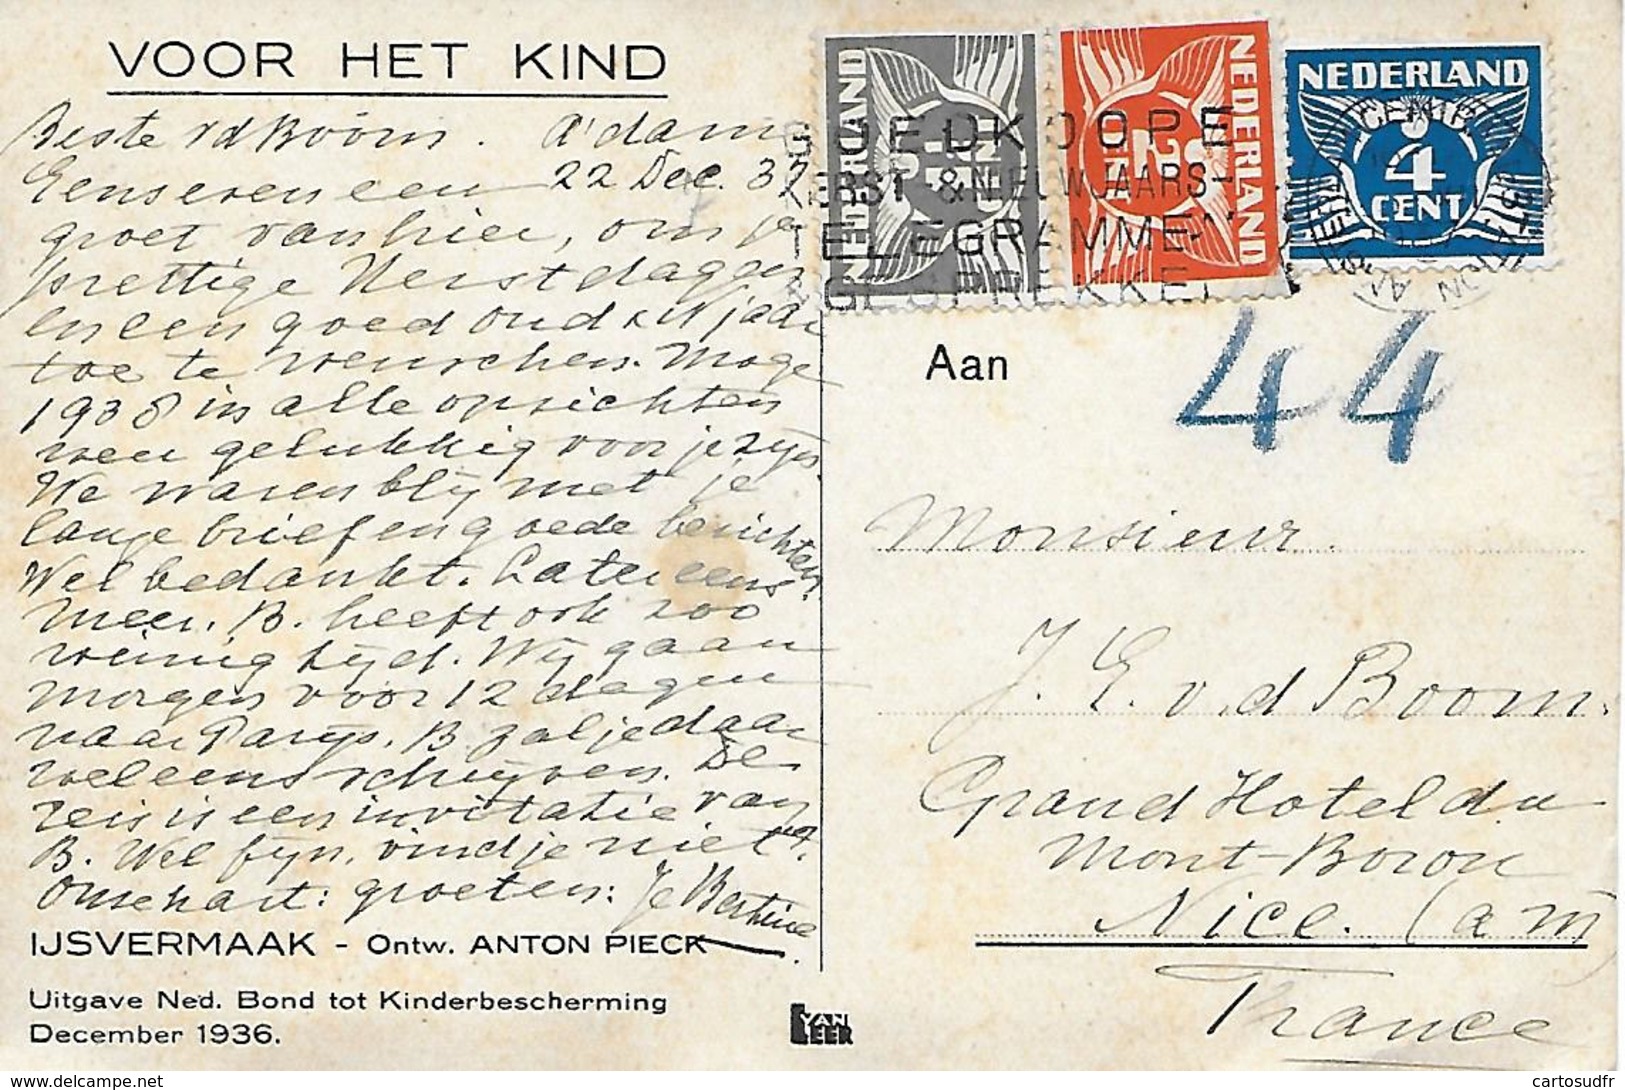 VOOR HET KIND
Beste v d Boom. A'dam
22 Dec. 37
Even een
groet van hier, om je
prettige Kerstdagen
en een goed oud & N jaar
toe te wenschen. Moge
1938 in alle opzichten
een gelukkig voor je zijn.
We waren blij met je
lange brief en goede berichten
Wel bedankt. Later eens
meer. B. heeft ook zoo
weinig tijd. Wij gaan
morgen voor 12 dagen
naar Parijs. B zal je daar
wel eens schrijven. De
reis is een invitatie van
B. Wel fijn, vind je niet?
Onze hart: groeten: Je Bertine
IJSVERMAAK - Ontw. ANTON PIECK
Uitgave Ned. Bond tot Kinderbescherming
December 1936.
VAN LEER
NEDERLAND
CENT
NEDERLAND
CENT
NEDERLAND
4
CENT
GOEDKOOPE
KERST- & NIEUWJAARS-
TELEGRAMMEN
& GESPREKKEN
Aan
44
Monsieur.
J. E. v. d Boom.
Grand Hotel du
Mont-Boron
Nice. (a M)
France
cartosudfr